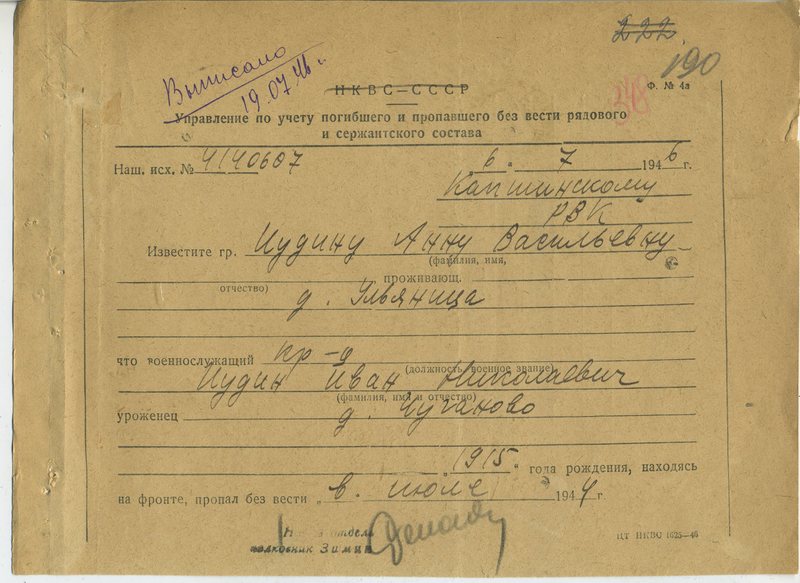 222
190
348
Выписано
19.07.46 г.
НКВС—СССР
Ф. № 4а
Управление по учету погибшего и пропавшего без вести рядового
и сержантского состава
Наш. исх. № 4140607 6. 7 1946 г.
Капшинскому
РВК
Известите гр. Иудину Анну Васильевну
(фамилия, имя,
проживающ.
отчество)
д. Ульяница
что военнослужащий кр-ц
(должность, военное звание)
Иудин Иван Николаевич
(фамилия, имя и отчество)
уроженец д. Чуганово
1915 года рождения, находясь
на фронте, пропал без вести в июле 1944 г.
отдела
полковник Зимин
ЦТ НКВС 1625—46